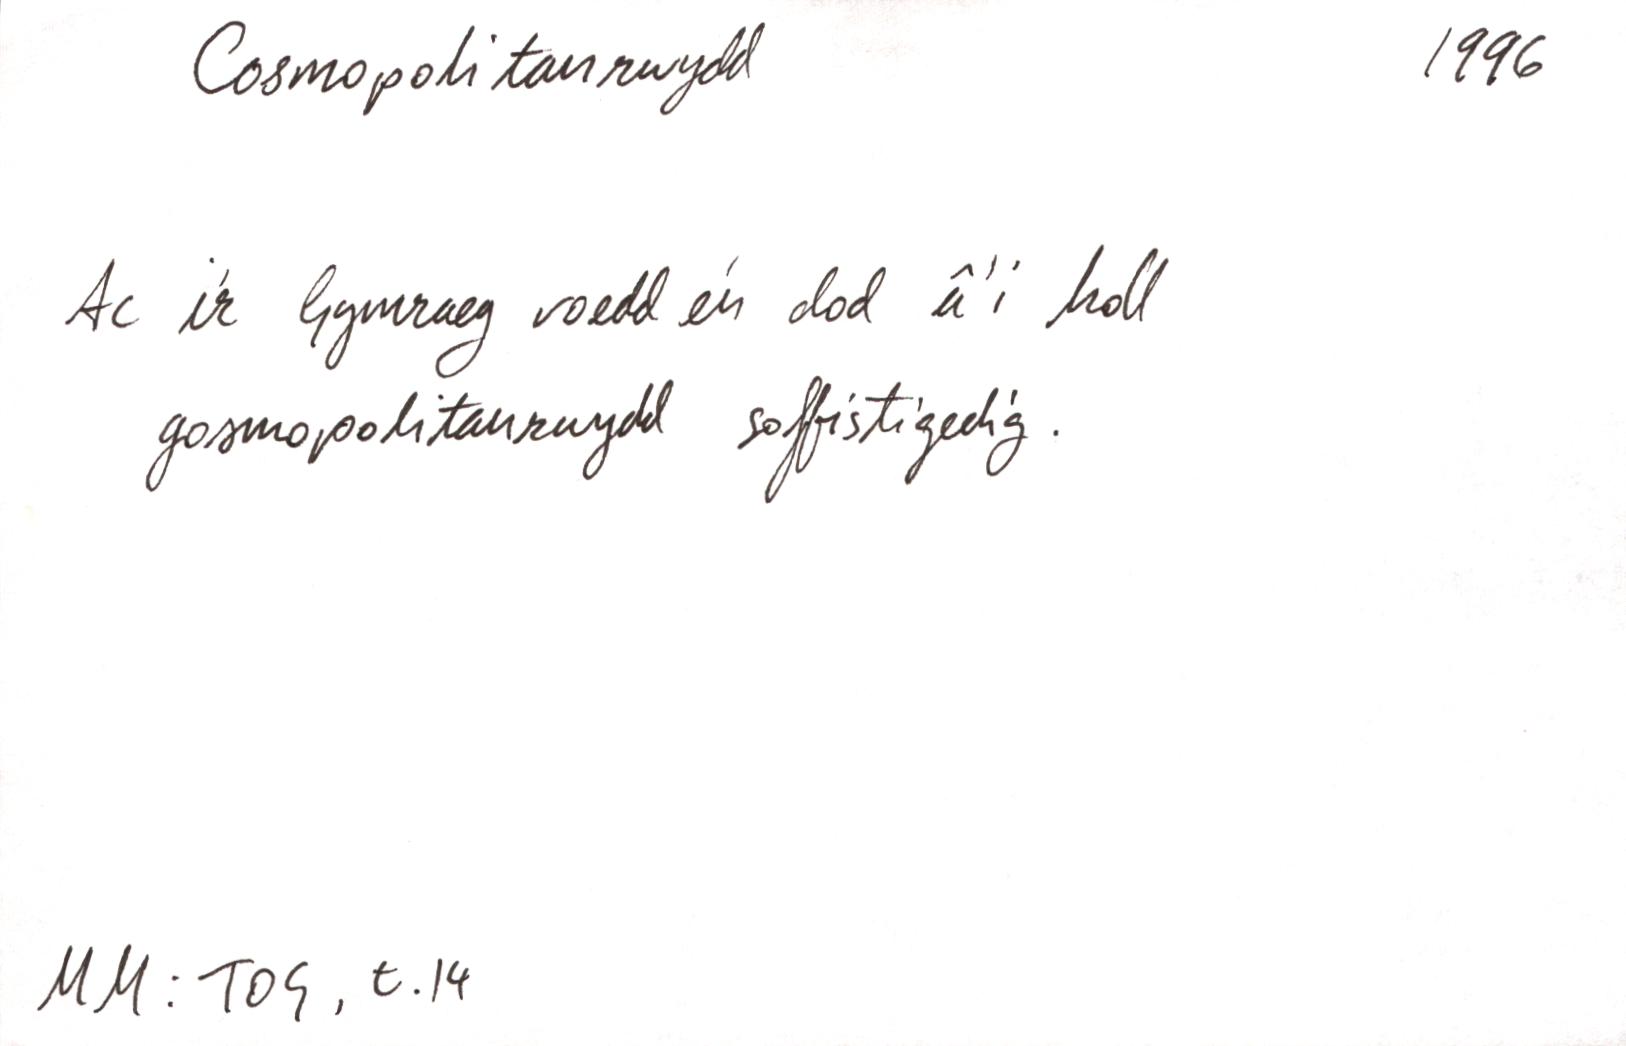 Cosmopolitanrwydd 1996
Ac i'r Gymraeg roedd e'n dod â'i holl
gosmopolitanrwydd soffistigedig.
MM: TOG, t.14